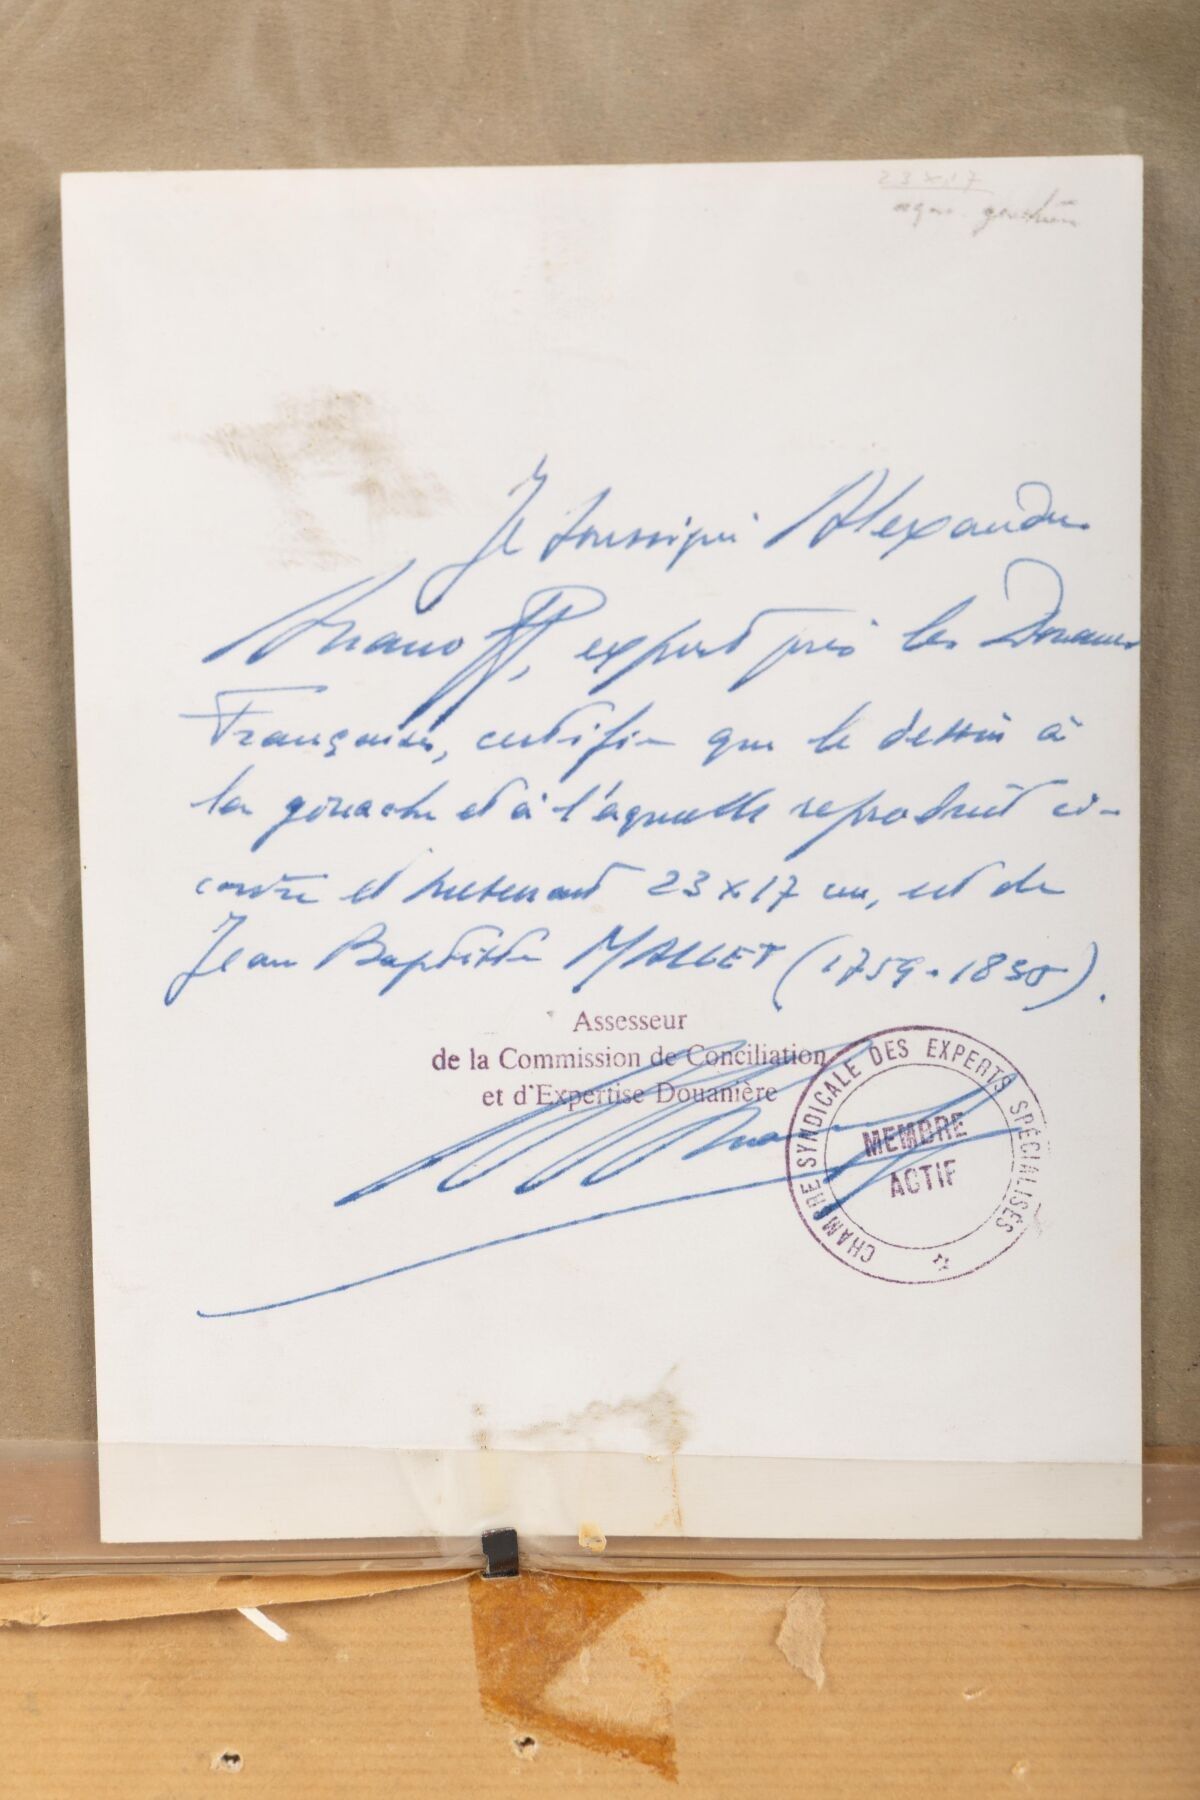 23 x 17
Je soussigné Alexandre
Ananoff, expert près les Douanes
Françaises, certifie que le dessin à
la gouache et à l'aquarelle reproduit ci-
contre et mesurant 23 x 17 cm, est de
Jean Baptiste MALLET (1759-1830).
Assesseur
de la Commission de Conciliation
et d'Expertise Douanière
CHAMBRE SYNDICALE DES EXPERTS SPÉCIALISÉS
MEMBRE
ACTIF